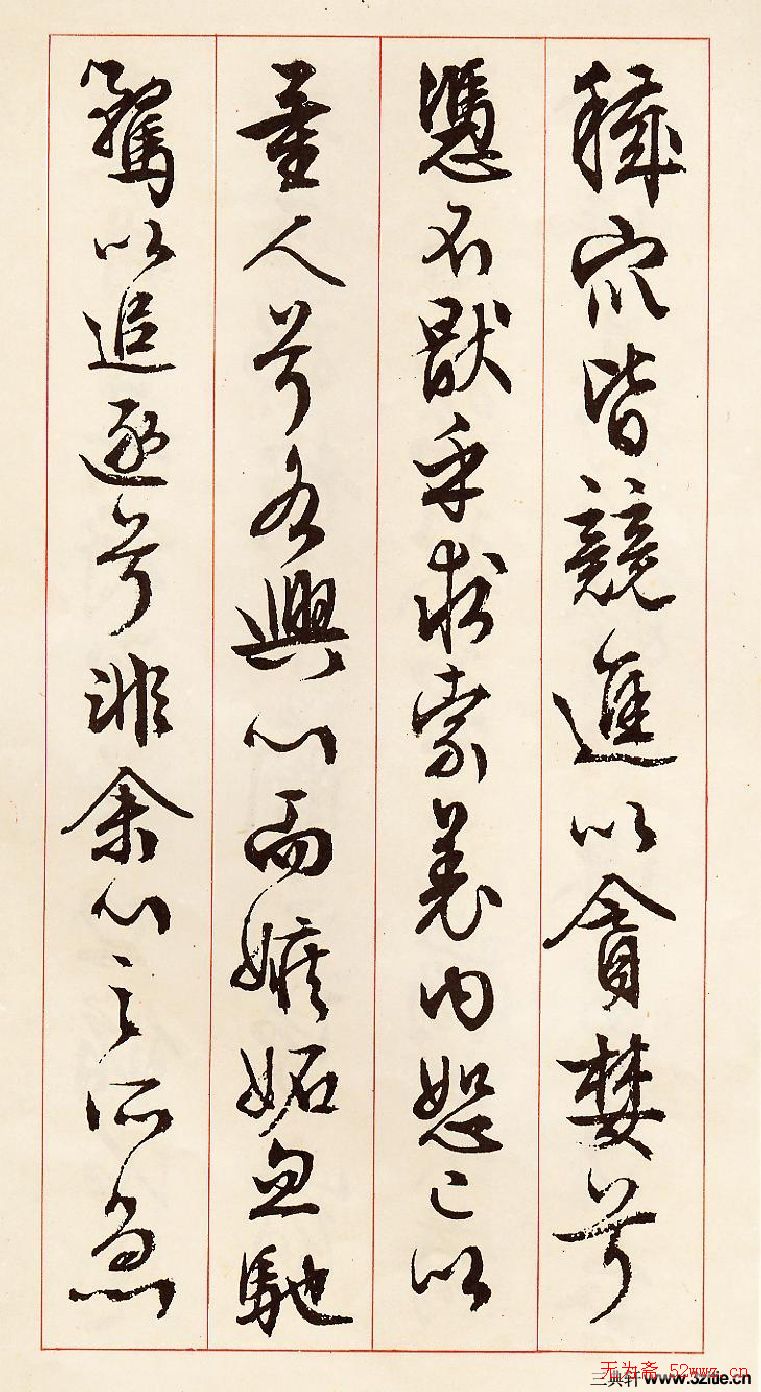 穢衆皆競進以貪婪兮
憑不猒乎求索羌内恕己以
量人兮各興心而嫉妬忽馳
騖以追逐兮非余心之所急
无为斋 52wwz.cn
三典轩 www.3zitie.cn